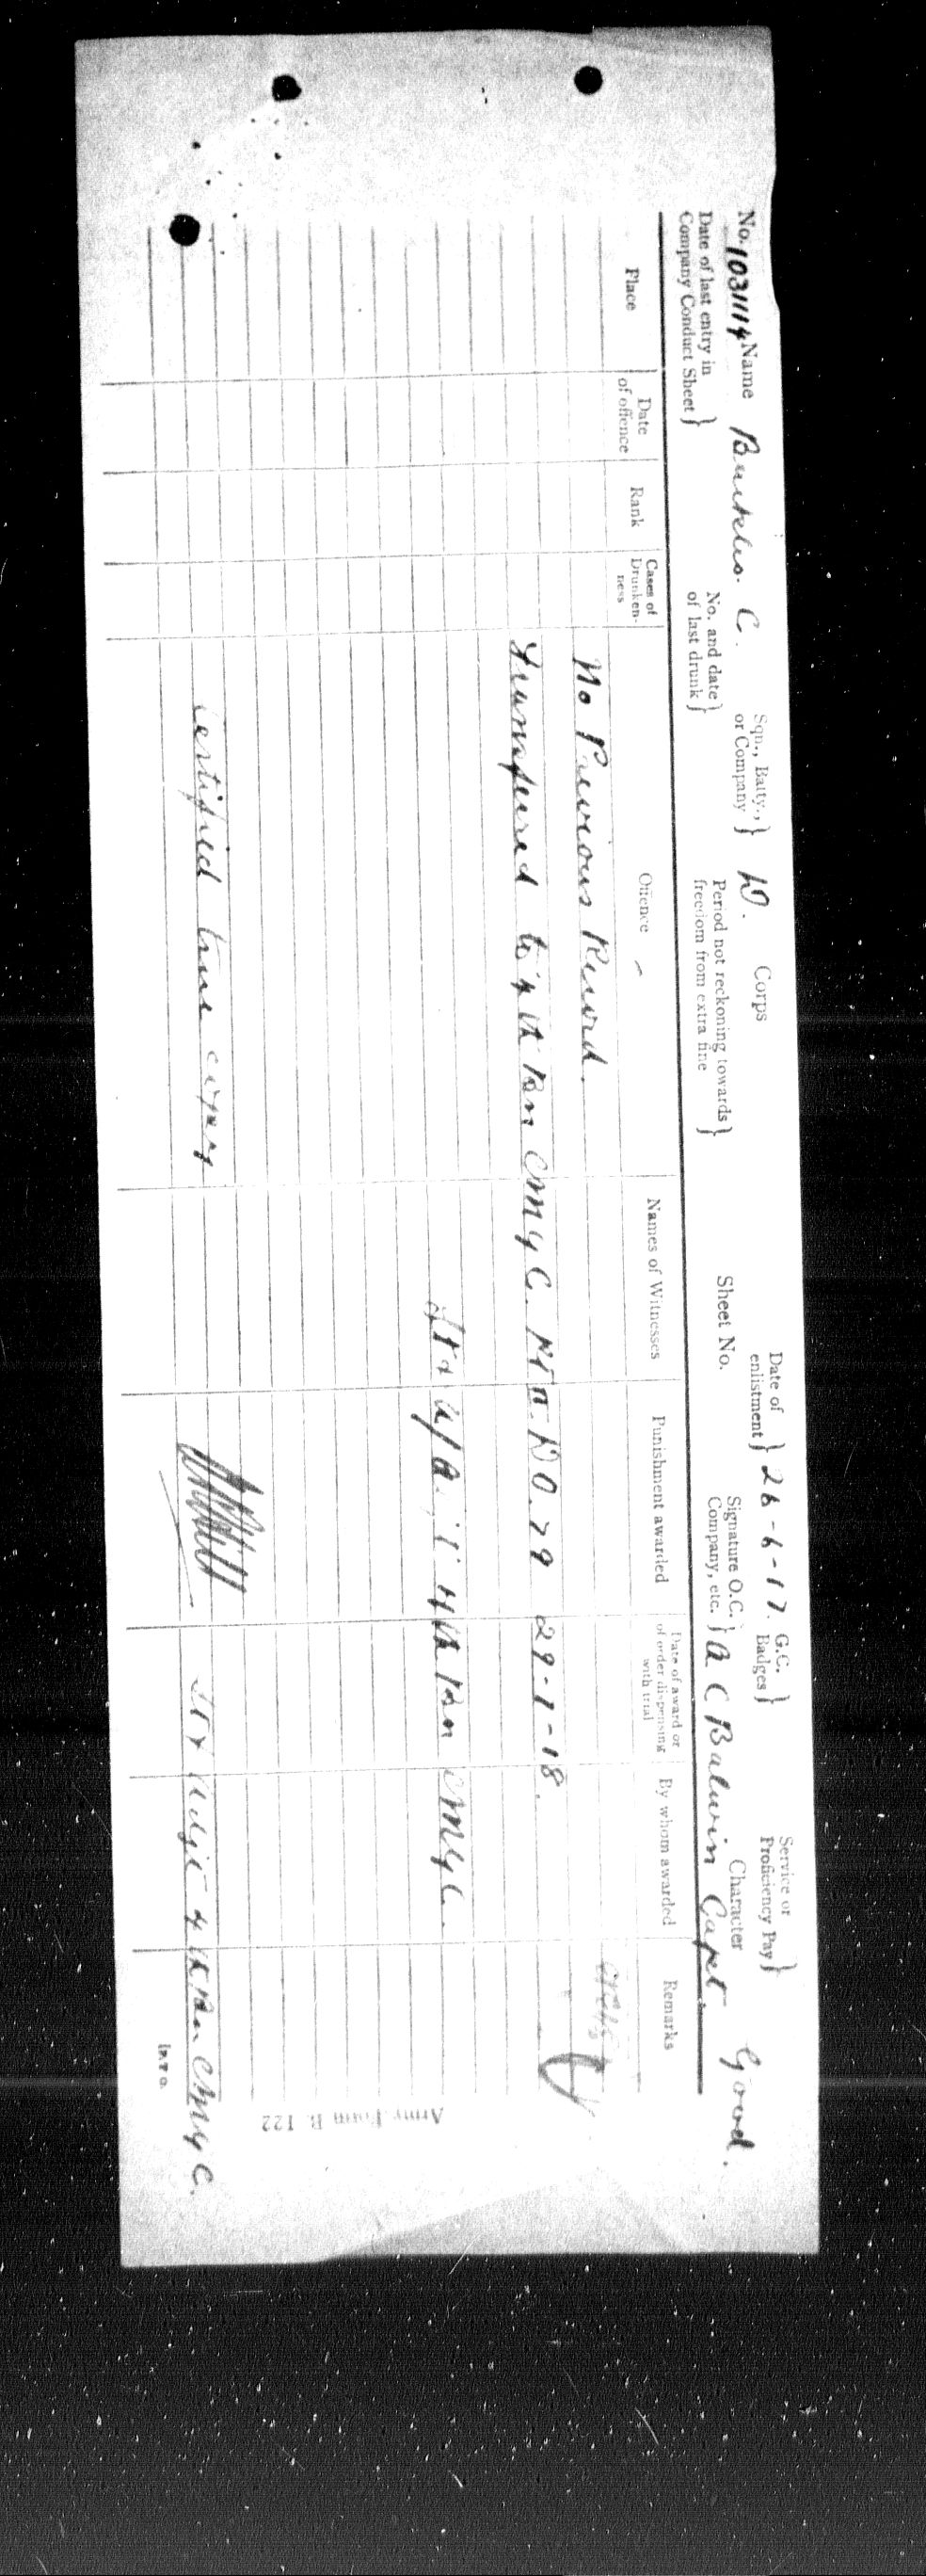 No. 1031114 Name Buckles. C. Sqn., Batty., or Company } D. Corps Date of enlistment } 26-6-17. G.C. Badges } Service or Proficiency Pay }
Date of last entry in Company Conduct Sheet } No. and date of last drunk } Period not reckoning towards freedom from extra fine } Sheet No. Signature O.C. Company, etc. } A C Baldwin Capt. Character Good.
Place Date of offence Rank Cases of Drunken-ness Offence Names of Witnesses Punishment awarded Date of award or of order dispensing with trial By whom awarded Remarks
No Previous Record.
Transferred to 4th Bn CMGC. D.O. 29 29-1-18.
4th Bn CMGC.
Certified true copy
Lt Adjt 4th Bn CMGC.
Army Form B. 122